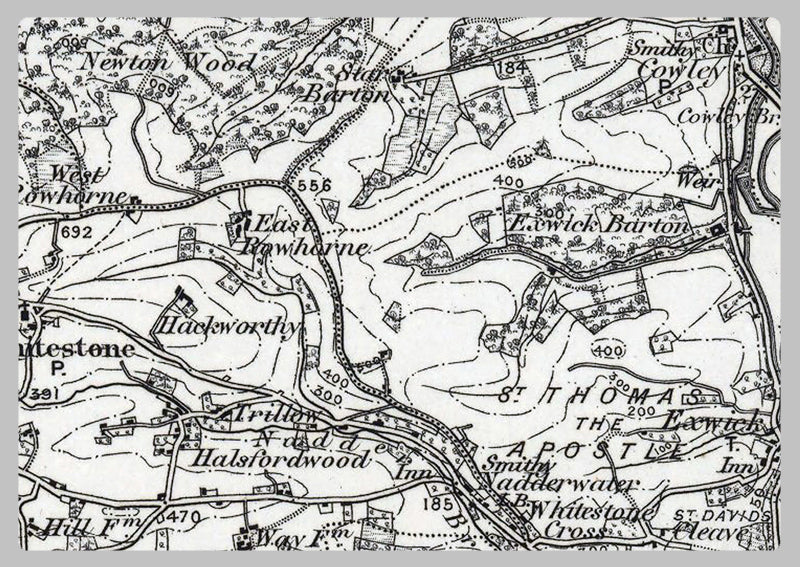 Newton Wood
600
600
Star
Barton
184
Smithy
Ch.
Cowley
P.
Cowley Br.
West
Rowhorne
556
692
East
Rowhorne
400
300
Weir
Exwick Barton
Hackworthy
itestone
P.
391
500
400
300
400
300
200
100
ST THOMAS
THE
APOSTLE
Exwick
T.
Inn
Trillow
Nadde
Halsfordwood
Inn
Smithy
Nadderwater
185
B.
Whitestone
Cross
ST DAVIDS
Cleave
Hill Fm
470
Way Fm
300